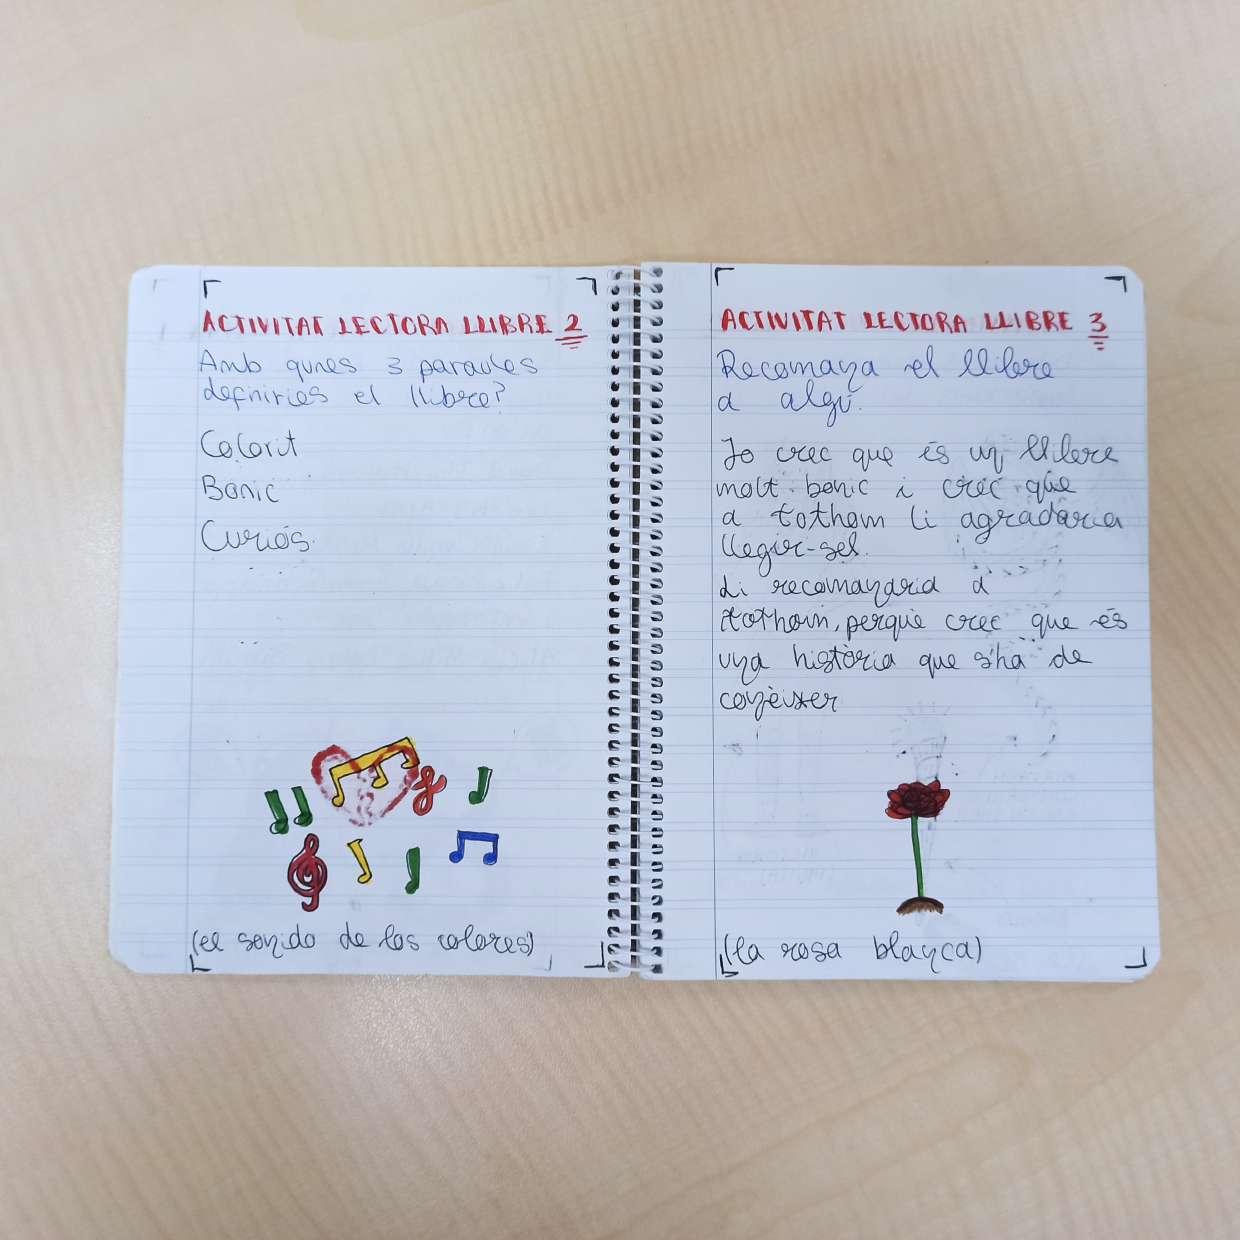 ACTIVITAT LECTORA LLIBRE 2
Amb qunes 3 paraules
definiries el llibre?
Colorit
Bonic
Curiós.
(el sonido de los colores)
ACTIVITAT LECTORA LLIBRE 3
Recomana el llibre
a algú.
Jo crec que és un llibre
molt bonic i crec que
a tothom li agradaria
llegir-sel.
Li recomanaria a
tothom, perquè crec que és
una història que s'ha de
conèixer
(la rosa blanca)